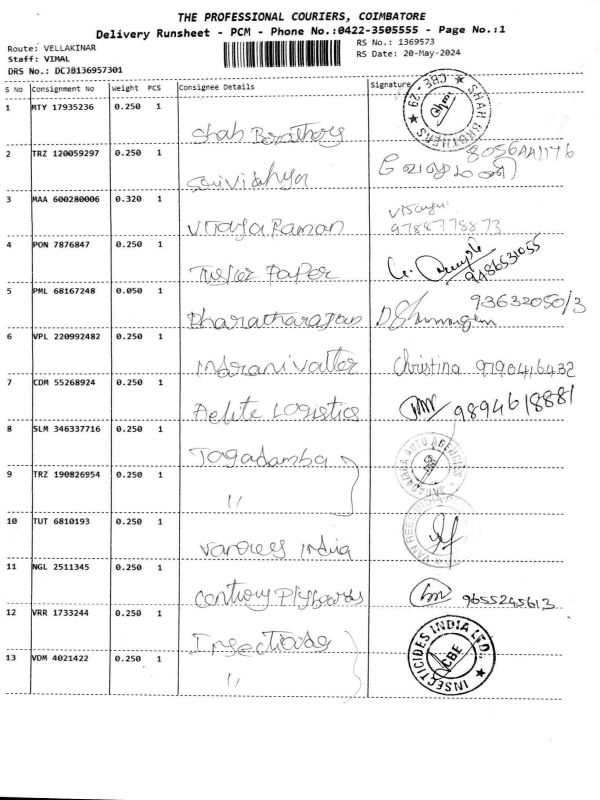 THE PROFESSIONAL COURIERS, COIMBATORE
Delivery Runsheet - PCM - Phone No.:0422-3505555 - Page No.:1
Route: VELLAKINAR
Staff: VIMAL
DRS No.: DCJB136957301
RS No.: 1369573
RS Date: 20-May-2024
S No Consignment No Weight PCS Consignee Details Signature
1 MTY 17935236 0.250 1 Shah Barothers SHAH BROTHERS CBE-29
2 TRZ 120059297 0.250 1 Saividhya வேலுமணி
3 MAA 600280006 0.320 1 Vijaya Raman Vijaya 9788778873
4 PON 7876847 0.250 1 Paper 9486531055
5 PML 68167248 0.050 1 Bharatharajan D Shanmugam 9363205013
6 VPL 220992482 0.250 1 Indrani Christina 9790416432
7 CDM 55268924 0.250 1 Aelite Logistics 9894618881
8 SLM 346337716 0.250 1 Jagadamba JAGADAMBA AUTO AGENCIES
9 TRZ 190826954 0.250 1 "
10 TUT 6810193 0.250 1 India
11 NGL 2511345 0.250 1 Century Plyboards 9655245613
12 VRR 1733244 0.250 1 Insecticides INSECTICIDES INDIA LTD. CBE
13 VDM 4021422 0.250 1 "